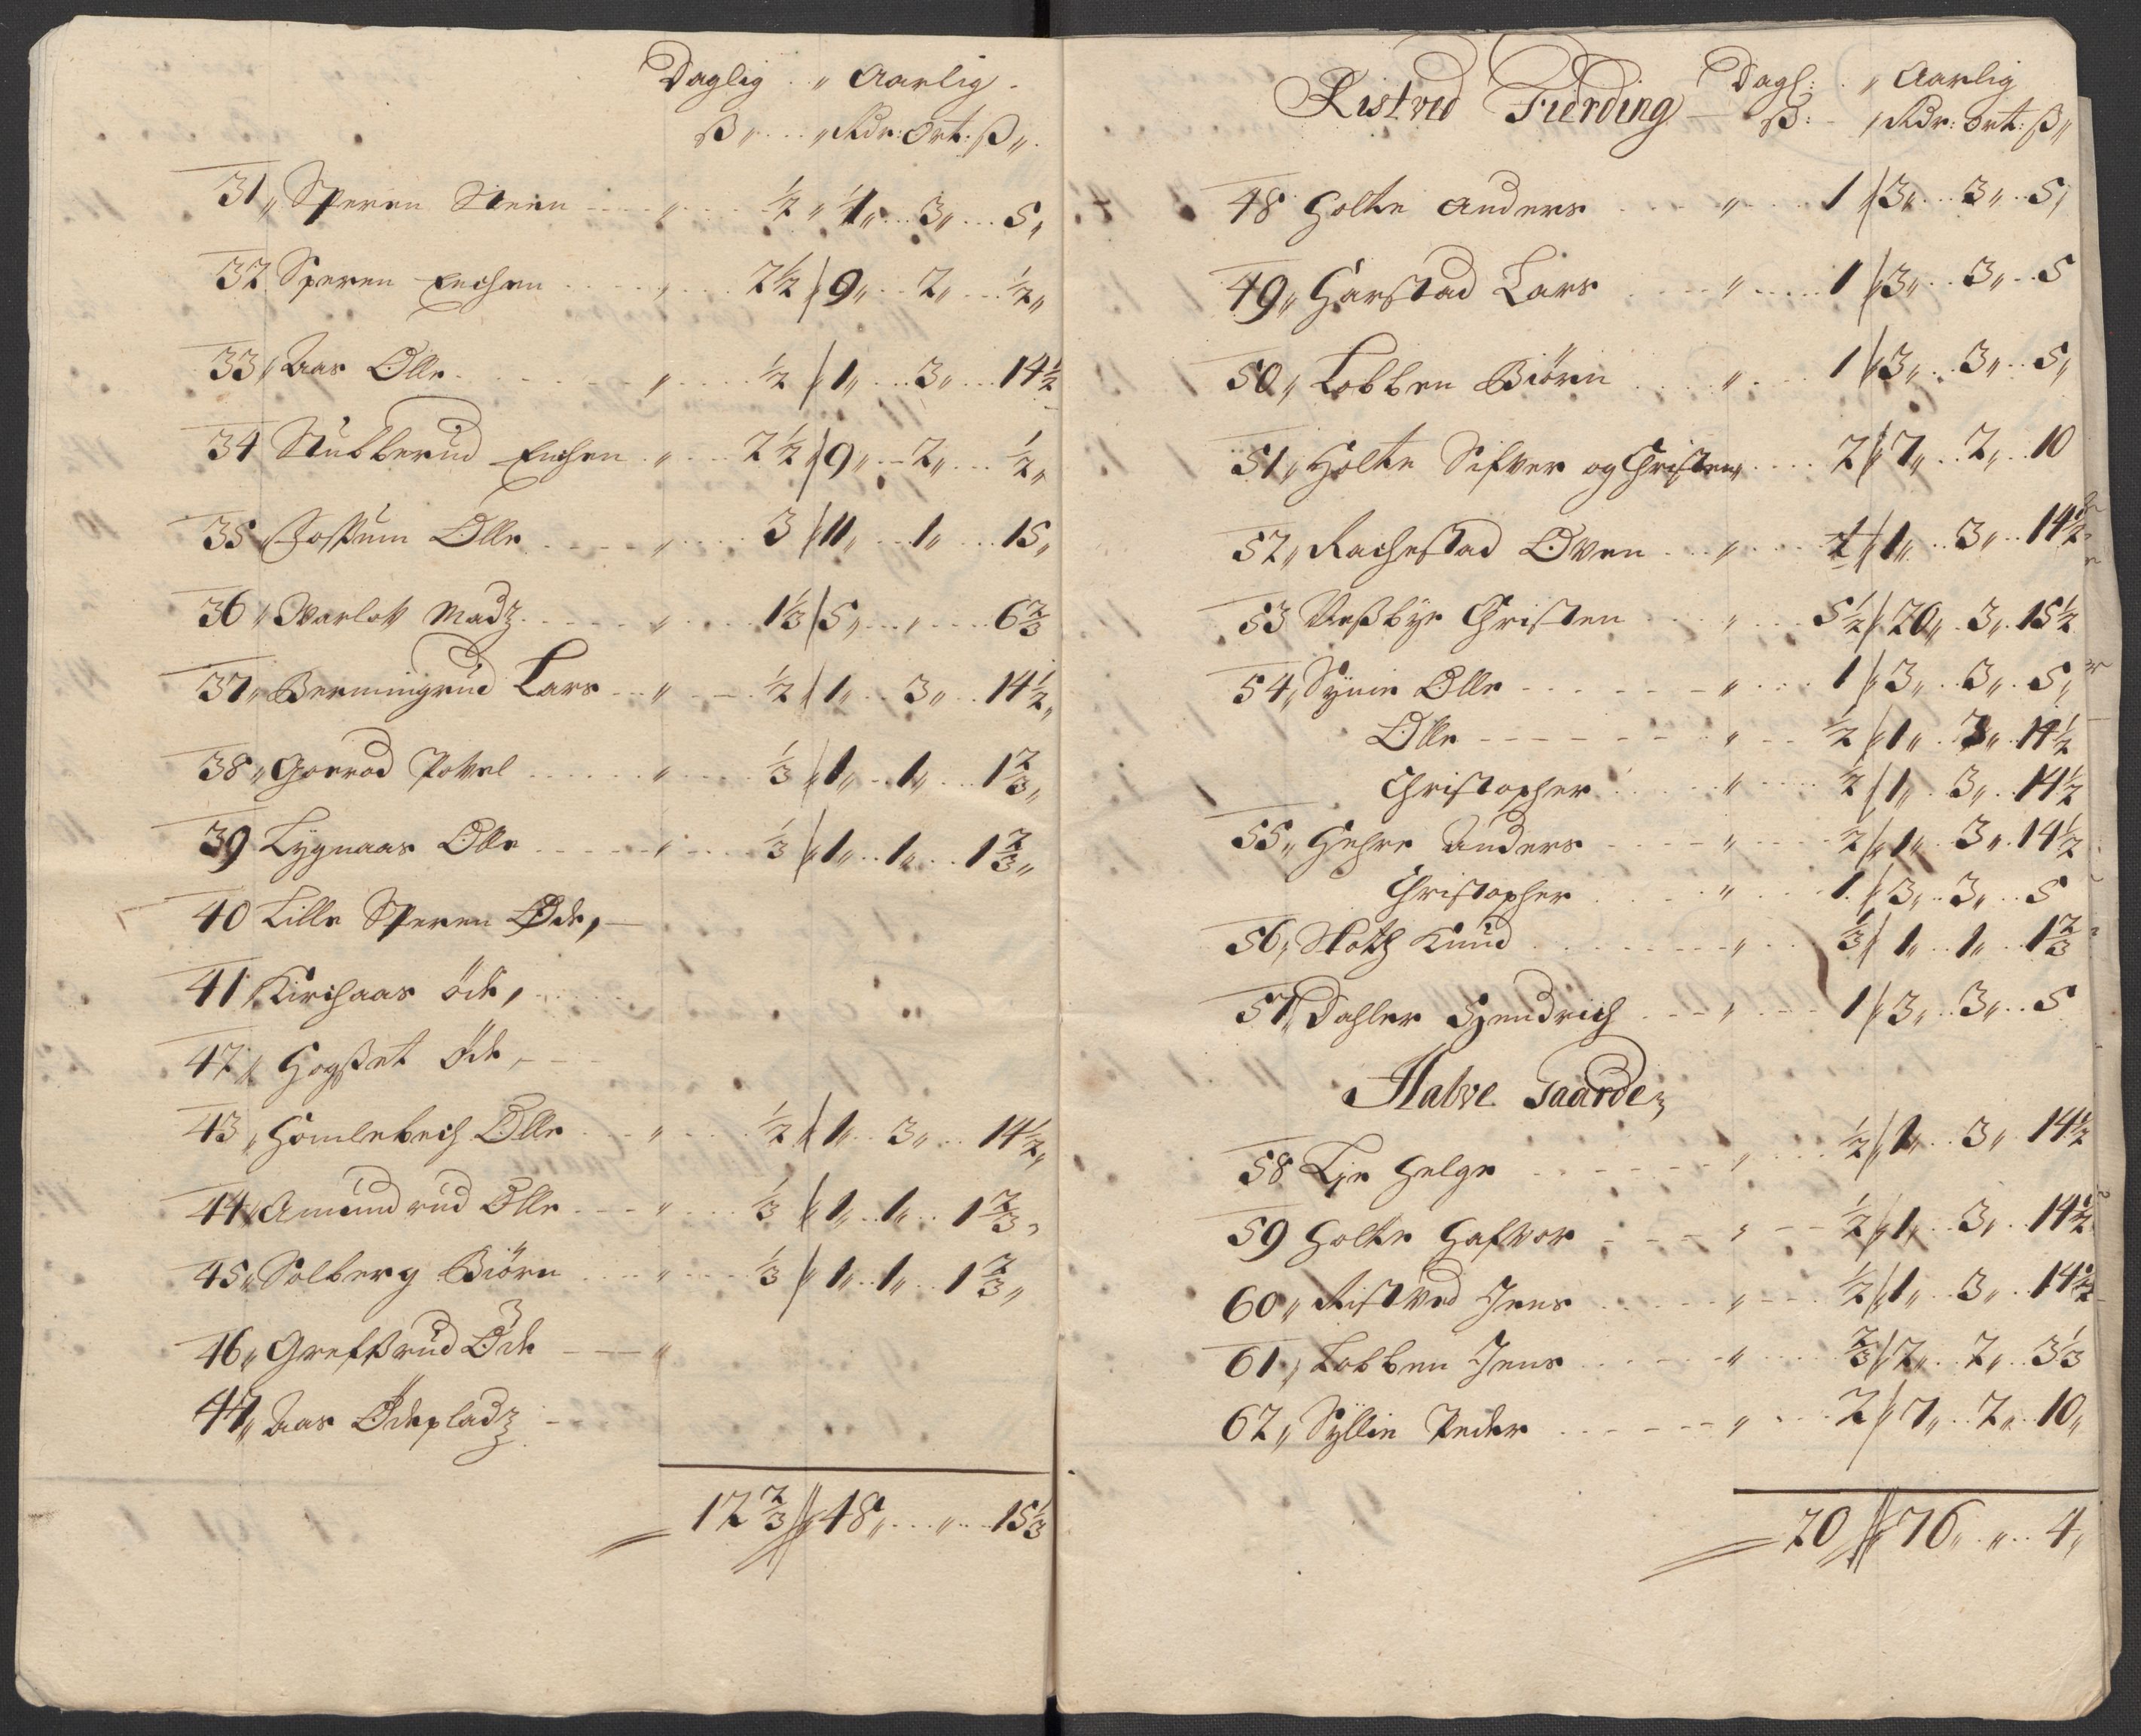 Daglig „ Aarlig.
ß „ „ Rdr: Ort: ß „
31 „ Speren Steen „ ½ „ 1 „ 3 „ 5 „
32 Speren „ 2½ „ 9 „ 2 „ ½ „
33 „ Aas Olle „ ½ „ 1 „ 3 „ 14½
34 Stubberud „ 2½ „ 9 „ 2 „ ½ „
35 „ Jossum Olle „ 3 „ 11 „ 1 „ 15 „
36 „ Warlo Madz „ 1⅓ 5 „ „ 6⅔
37 „ Bermingrud Lars „ ½ „ 1 „ 3 „ 14½ „
38 „ Gorrod Povel „ ⅓ „ 1 „ 1 „ 1⅔ „
39 Lygnaas Olle „ ⅓ „ 1 „ 1 „ 1⅔ „
40 Lille Speren Øde,
41 „ Kirchaas öde,
42 „ Hogßet Öde,
43 „ Homlebech Olle „ ½ „ 1 „ 3 „ 14½ „
44 „ Amundrud Olle „ ⅓ „ 1 „ 1 „ 1⅔ „
45 „ Solberg Biörn „ ⅓ „ 1 „ 1 „ 1⅔ „
46 „ Grefsrud Öde „
47 „ Aas Ödepladz
12⅔ „ 48 „ „ 15⅓
Ristved Fierding Dagl: „ Aarlig
ß: „ Rdr: Ort: ß „
48 Holte Anders „ 1 „ 3 „ 3 „ 5 „
49 „ Harstad Lars „ 1 „ 3 „ 3 „ 5
50 „ Lobben Biörn „ 1 „ 3 „ 3 „ 5 „
51 „ Holte Sifver og Christen „ 2 „ 7 „ 2 „ 10
52 „ Rachestad Oven „ ½ „ 1 „ 3 „ 14½
53 Neßbye Christen „ 5½ „ 20 „ 3 „ 15½
54 „ Synie Olle „ 1 „ 3 „ 3 „ 5 „
Olle „ ½ „ 1 „ 3 „ 14½
Christopher „ ½ „ 1 „ 3 „ 14½
55 „ Hehre Anders „ ½ „ 1 „ 3 „ 14½
Christopher „ 1 „ 3 „ 3 „ 5
56 „ Knud „ ⅓ „ 1 „ 1 „ 1⅔
57 „ Dahler Hendrich „ 1 „ 3 „ 3 „ 5
Halve Gaarde
58 Lie Helge „ ½ „ 1 „ 3 „ 14½
59 Holte Hafvor „ ½ „ 1 „ 3 „ 14½
60 „ Ristved Jens „ ½ „ 1 „ 3 „ 14½
61 „ Lobben Jens „ ⅔ „ 2 „ 2 „ 3⅓
62 „ Syllie Peder „ 2 „ 7 „ 2 „ 10 „
20 „ 76 „ „ 4 „